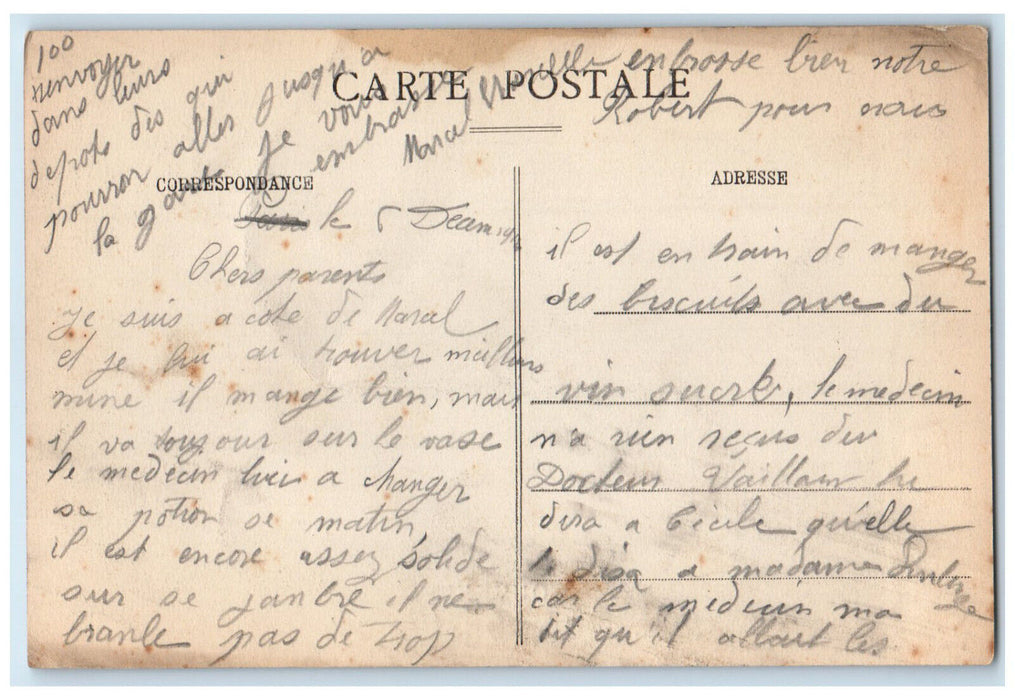 CARTE POSTALE
CORRESPONDANCE
ADRESSE
le 5 Decem
Chers parents
je suis a cote de Marcel
et je lui ai trouver meilleurs
mine il mange bien, mais
il va toujour sur le vase
le medecin lui a Manger
sa potion se matin,
il est encore assez solide
sur se janbre il ne
branle pas de trop
il est en train de manger
des biscuits avec du
vin sucrer, le medecin
n'a rien reçus du
Docteur Vaillant tu
dira a Cécile qu'elle
le disa a madame
car le medecin ma
dit qu'il allait les
100
renvoyer
dans leurs
depots dès qui
pourron aller jusqu'a
la gare je vous
embrasse
Marcel
embrasse bien notre
Robert pour nous